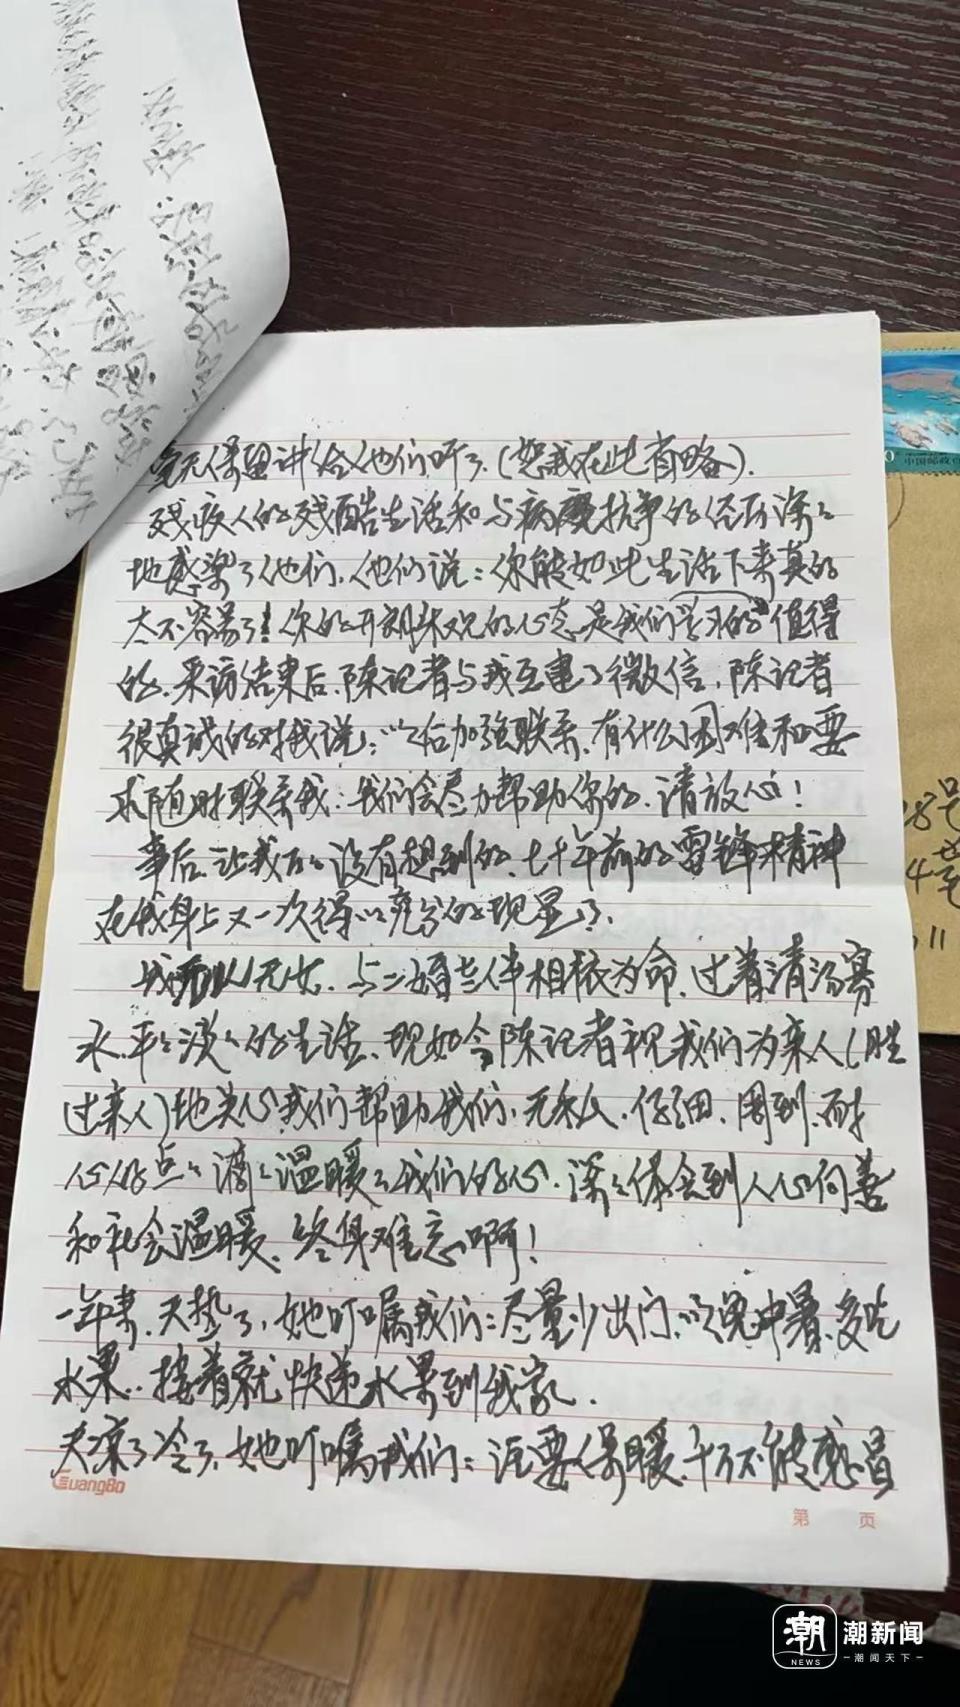 毫无保留讲给他们听了.(恕我在此省略).
残疾人的残酷生活和与病魔抗争的经历深深
地感染了他们.他们说:你能如此生活下来真的
太不容易了!你的开朗乐观的心态是我们学习的值得
的.采访结束后.陈记者与我互建了微信,陈记者
很真诚的对我说:以后加强联系.有什么困难和要
求随时联系我:我们会尽力帮助你的.请放心!
事后.让我万万没有想到的.七十年前的雷锋精神
在我身上又一次得以充分的现显了.
我无儿无女.与二婚老伴相依为命.过着清汤寡
水.平平淡淡的生活.现如今陈记者视我们为亲人(胜
过亲人)地关心我们帮助我们.无私.仔细.周到.耐
心的点点滴滴温暖了我们的心.深深体会到人心向善
和社会温暖.终身难忘啊!
一年来.天热了,她叮嘱我们:尽量少出门.以免中暑.多吃
水果..接着就快递水果到我家.
天凉了冷了.她叮嘱我们:注要保暖.千万不能感冒
GuangBo
第 页
中国邮政
28号
11
潮 NEWS
潮新闻
潮闻天下